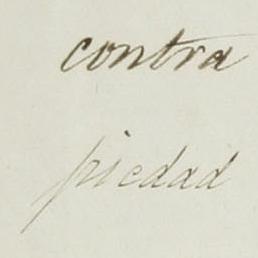 contra
piedad